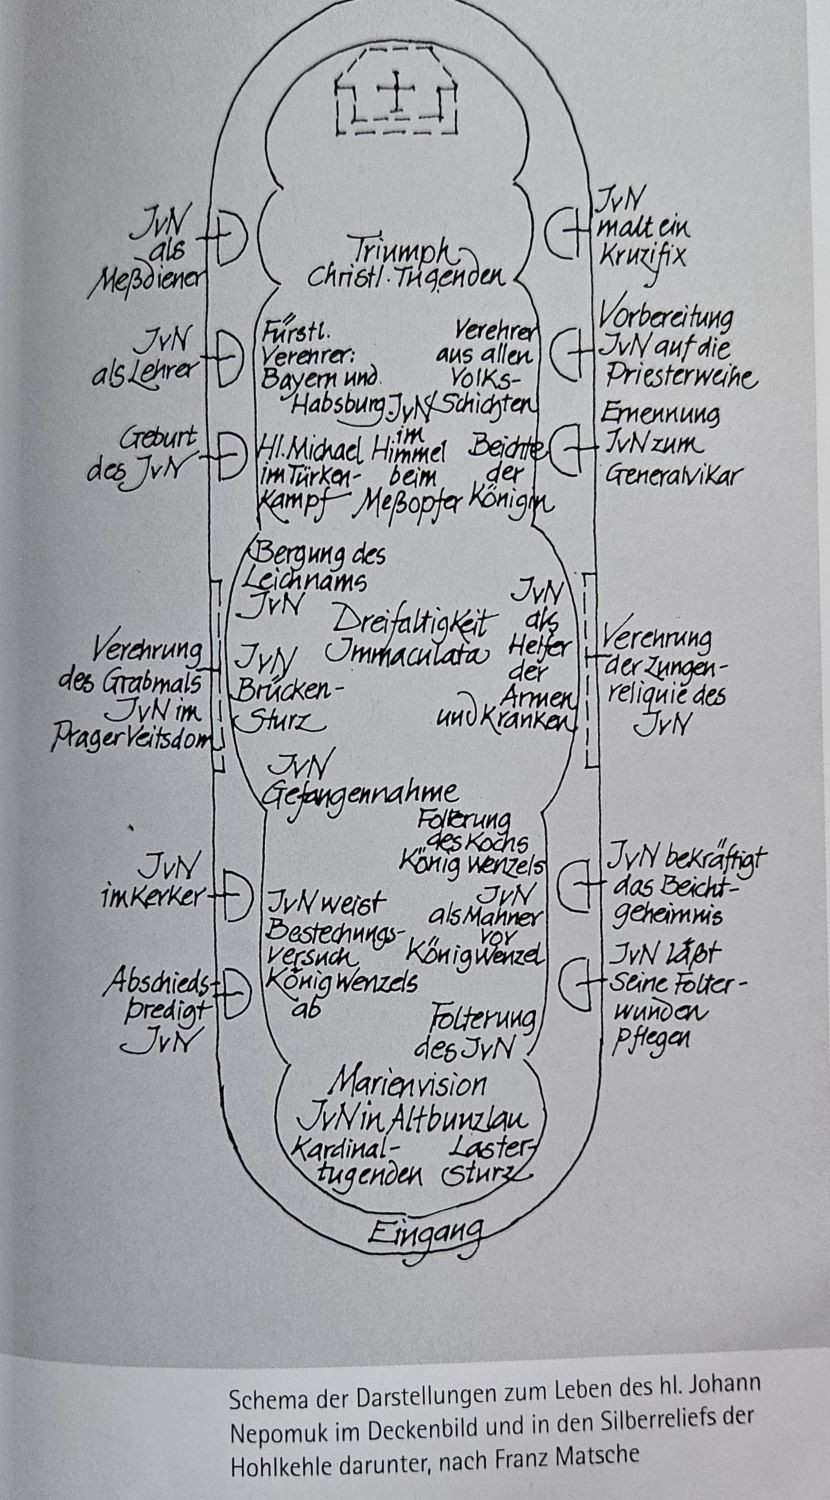 JvN
als
Meßdiener
JvN
malt ein
Kruzifix
Triumph
Christl. Tugenden
JvN
als Lehrer
Fürstl.
Verehrer:
Bayern und
Habsburg
Verehrer
aus allen
Volks-
Schichten
Vorbereitung
JvN auf die
Priesterweihe
Geburt
des JvN
Hl. Michael
im Türken-
Kampf
JvN
im
Himmel
beim
Meßopfer
Beichte
der
Königin
Ernennung
JvN zum
Generalvikar
Bergung des
Leichnams
JvN
Dreifaltigkeit
Immaculata
JvN
als
Helfer
der
Armen
und Kranken
Verehrung
des Grabmals
JvN im
Prager Veitsdom
JvN
Brücken-
Sturz
Verehrung
der Zungen-
reliquie des
JvN
JvN
Gefangennahme
Folterung
des Kochs
König Wenzels
JvN
im Kerker
JvN weist
Bestechungs-
versuch
König Wenzels
ab
JvN
als Mahner
vor
König Wenzel
JvN bekräftigt
das Beicht-
geheimnis
Abschieds-
predigt
JvN
Folterung
des JvN
JvN läßt
seine Folter-
wunden
pflegen
Marienvision
JvN in Altbunzlau
Kardinal-
tugenden
Laster-
Sturz
Eingang
Schema der Darstellungen zum Leben des hl. Johann
Nepomuk im Deckenbild und in den Silberreliefs der
Hohlkehle darunter, nach Franz Matsche